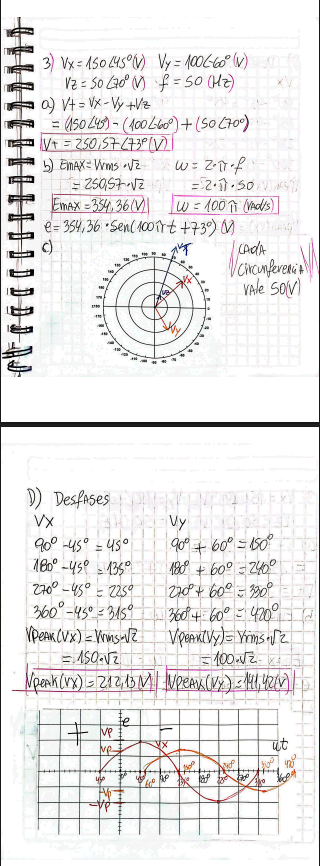 3) Vx = 150∠45° (V) Vy = 100∠-60° (V)
Vz = 50∠70° (V) f = 50 (Hz)
a) Vt = Vx - Vy + Vz
= (150∠45°) - (100∠-60°) + (50∠70°)
Vt = 250,57∠73° (V)
b) Emax = Vrms · √2 ω = 2·π·f
= 250,57·√2 = 2·π·50
Emax = 354,36 (V) ω = 100π (rad/s)
e = 354,36 · Sen(100πt + 73°) (V)
c)
VT
Vx
Vz
Vy
CADA
Circunferencia
VALE 50(V)
D) Desfases
Vx Vy
90° - 45° = 45° 90° + 60° = 150°
180° - 45° = 135° 180° + 60° = 240°
270° - 45° = 225° 270° + 60° = 330°
360° - 45° = 315° 360° + 60° = 420°
Vpeak(Vx) = Vrms·√2 Vpeak(Vy) = Vrms·√2
= 150·√2 = 100·√2
Vpeak(Vx) = 212,13(V) Vpeak(Vy) = 141,42(V)
+ e -
Vp Vx
Vp
ωt
-Vp
-Vp
360°
420°